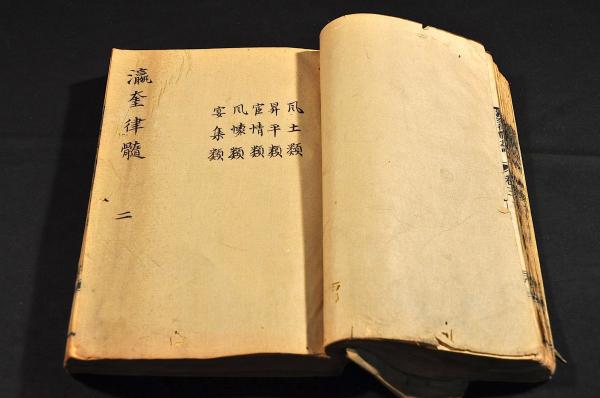 風土類
昇平類
宦情類
風懷類
宴集類
瀛奎律髓 二